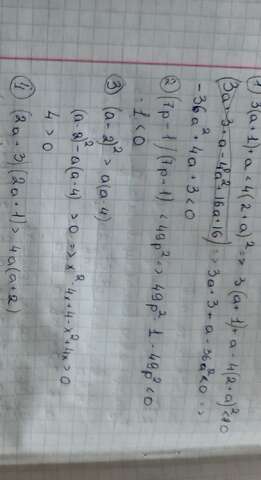 ① 3(a+1)+a<4(2+a)² => 3(a+1)+a-4(2+a)²<0
(3a+3+a-4a²-16a-16) => 3a+3+a-36a²<0 =>
-36a²+4a+3<0
② (7p-1)(7p+1)<49p² => 49p²-1-49p²<0
-1<0
③ (a-2)²>a(a-4)
(a-2)²-a(a-4)>0 => x²-4x+4-x²+4x>0
4>0
④ (2a+3)(2a+1)>4a(a+2)